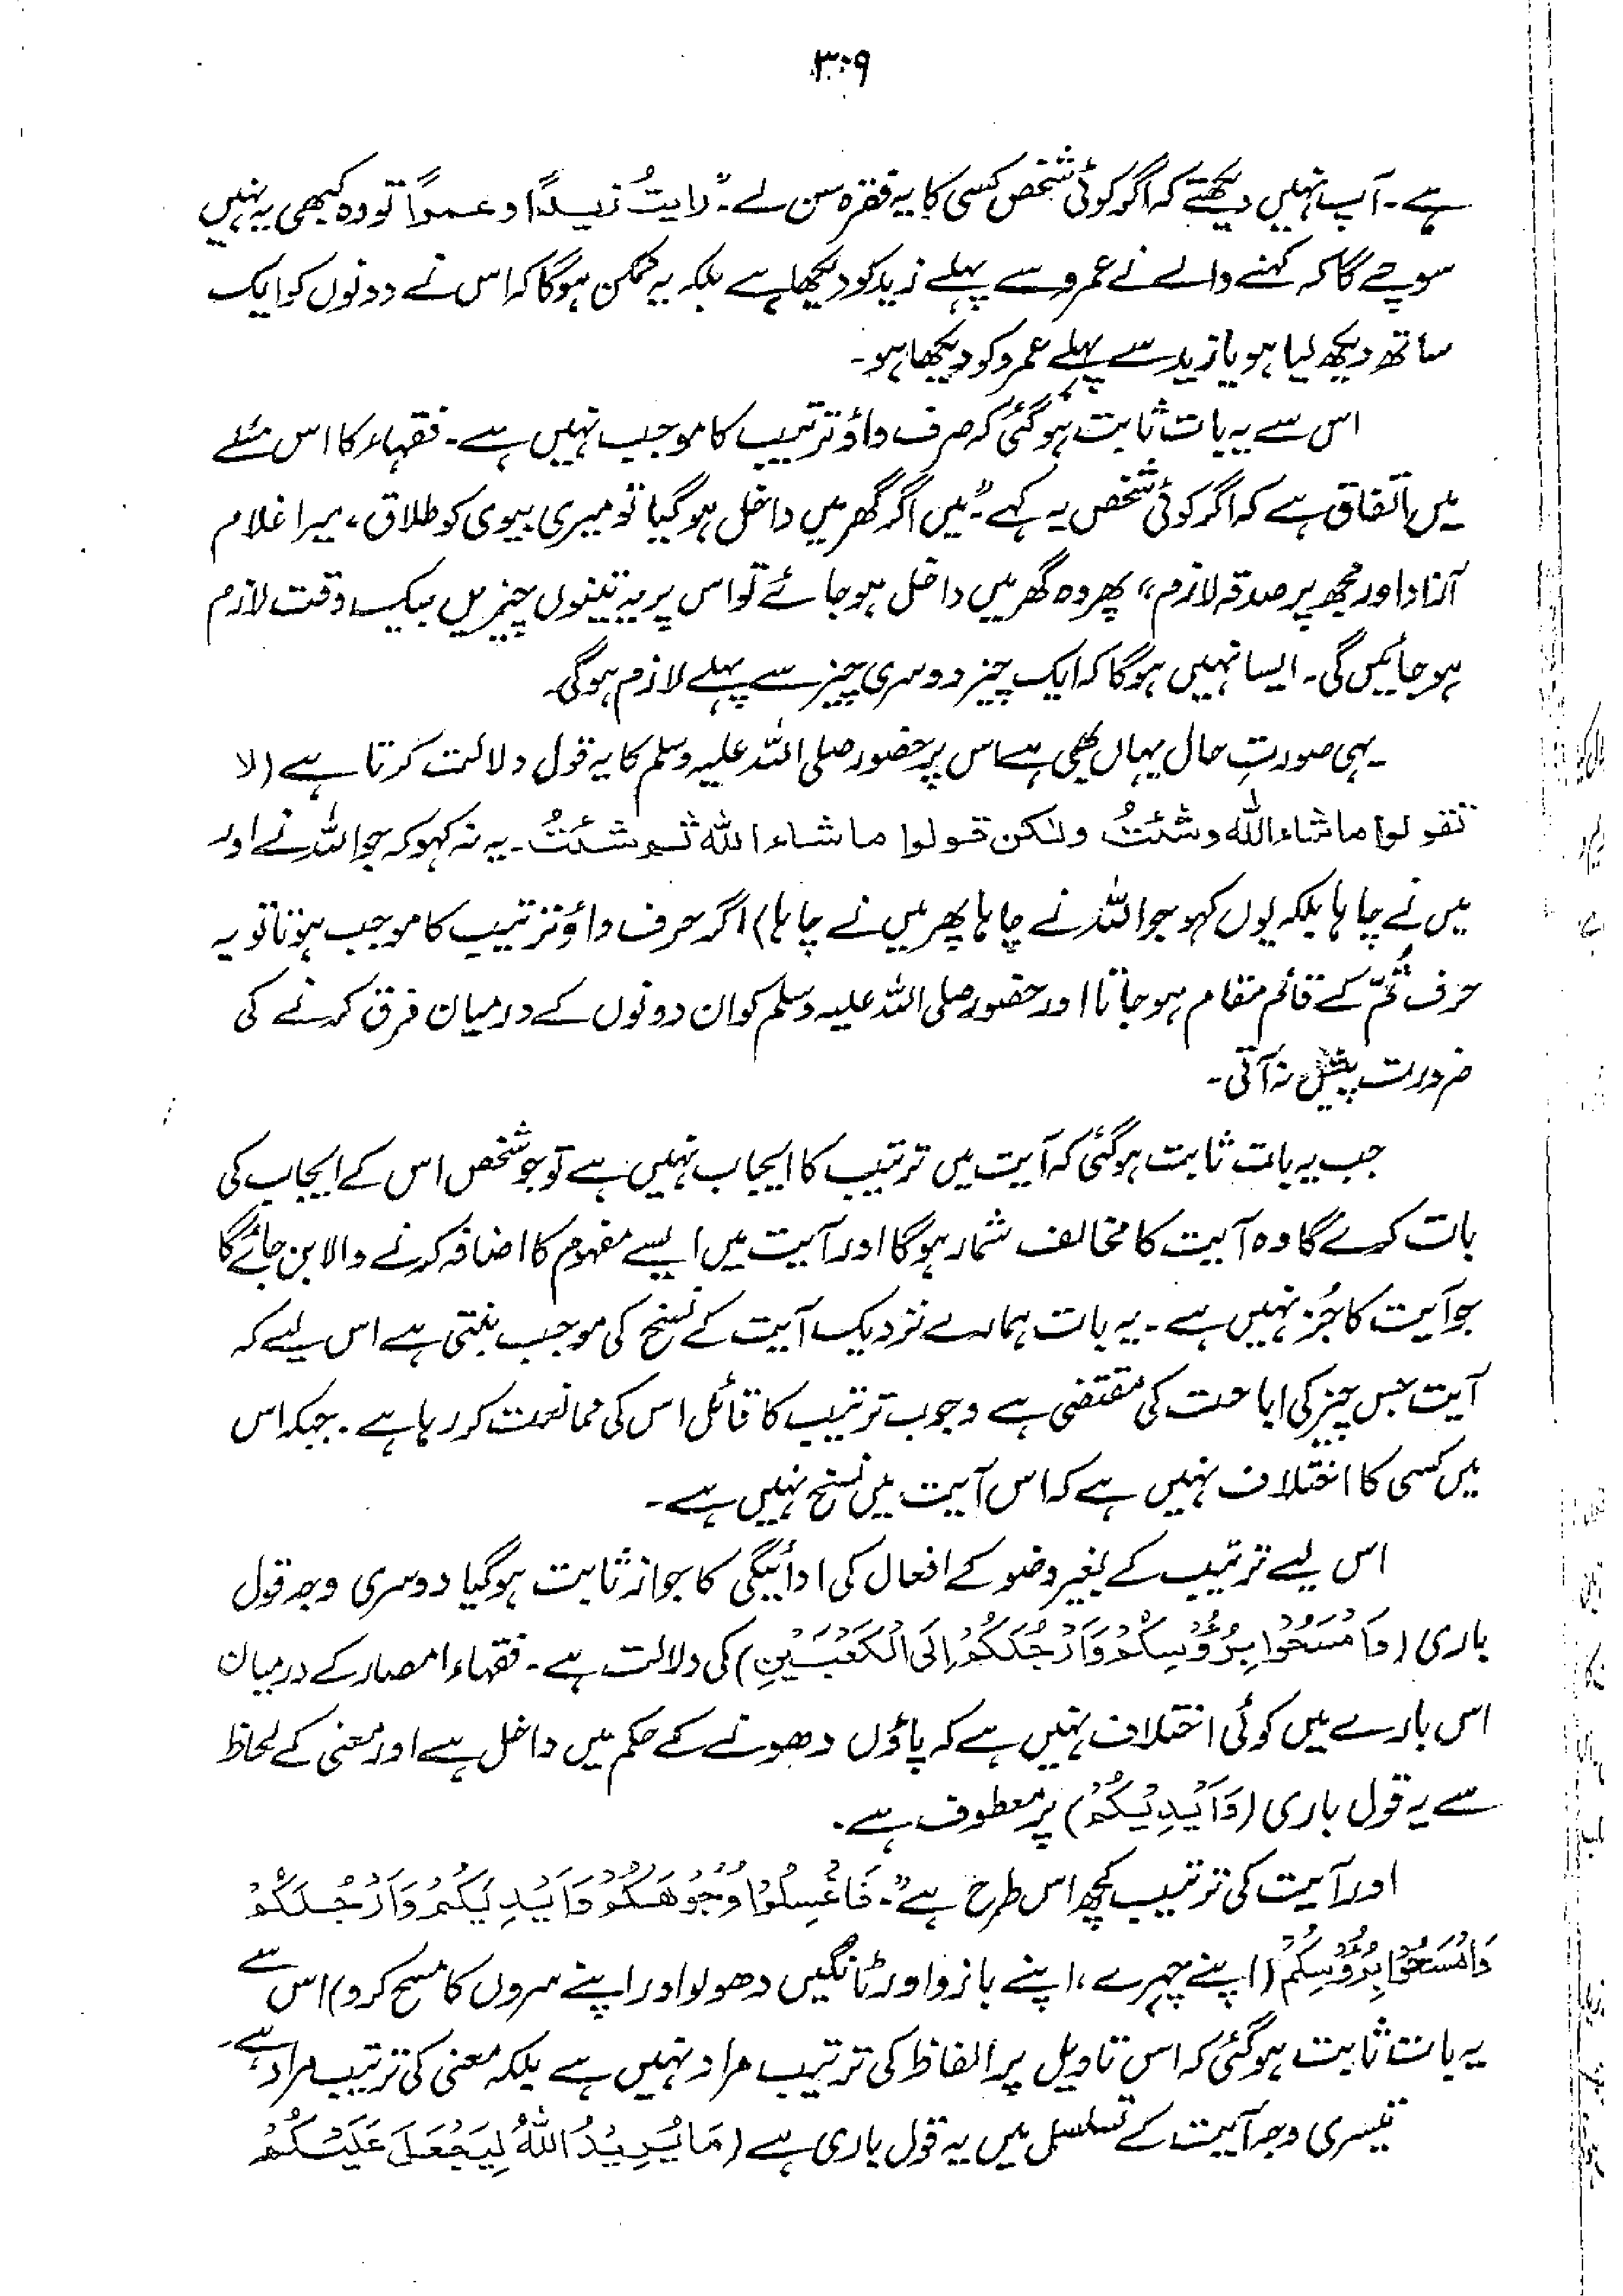 ۳۰۹
ہے۔ آپ نہیں دیکھتے کہ اگر کوئی شخص کسی کا یہ فقرہ سن لے۔ "رایتُ زیدًا وعمروًا تو وہ کبھی یہ نہیں
سوچے گا کہ کہنے والے نے عمرو سے پہلے زید کو دیکھا ہے بلکہ یہ ممکن ہوگا کہ اس نے دونوں کو ایک
ساتھ دیکھ لیا ہو یا زید سے پہلے عمرو کو دیکھا ہو۔
اس سے یہ بات ثابت ہوگئی کہ حرف واؤ ترتیب کا موجب نہیں ہے۔ فقہاء کا اس مسئلے
میں اتفاق ہے کہ اگر کوئی شخص یہ کہے۔ "میں اگر گھر میں داخل ہوگیا تو میری بیوی کو طلاق، میرا غلام
آزاد اور مجھ پر صدقہ لازم" پھر وہ گھر میں داخل ہوجائے تو اس پر یہ تینوں چیزیں بیک وقت لازم
ہوجائیں گی۔ ایسا نہیں ہوگا کہ ایک چیز دوسری چیز سے پہلے لازم ہوگی۔
یہی صورتِ حال یہاں بھی ہے اس پر حضور صلی اللہ علیہ وسلم کا یہ قول دلالت کرتا ہے (لا
تقولوا ماشاء اللہ وشئتُ ولکن قولوا ماشاء اللہ ثم شئتُ۔ یہ نہ کہو کہ جو اللہ نے اور
میں نے چاہا بلکہ یوں کہو جو اللہ نے چاہا پھر میں نے چاہا) اگر حرف واؤ ترتیب کا موجب ہوتا تو یہ
حرف ثُمّ کے قائم مقام ہوجاتا اور حضور صلی اللہ علیہ وسلم کو ان دونوں کے درمیان فرق کرنے کی
ضرورت پیش نہ آتی۔
جب یہ بات ثابت ہوگئی کہ آیت میں ترتیب کا ایجاب نہیں ہے تو جو شخص اس کے ایجاب کی
بات کرے گا وہ آیت کا مخالف شمار ہوگا اور آیت میں ایسے مفہوم کا اضافہ کرنے والا بن جائے گا
جو آیت کا جُز نہیں ہے۔ یہ بات ہمارے نزدیک آیت کے نسخ کی موجب بنتی ہے اس لیے کہ
آیت جس چیز کی اباحت کی مقتضی ہے وجوب ترتیب کا قائل اس کی ممانعت کر رہا ہے۔ جبکہ اس
میں کسی کا اختلاف نہیں ہے کہ اس آیت میں نسخ نہیں ہے۔
اس لیے ترتیب کے بغیر وضو کے افعال کی ادائیگی کا جواز ثابت ہوگیا دوسری وجہ قول
باری (وَامْسَحُوْا بِرُؤُسِكُمْ وَاَرْجُلَكُمْ اِلَى الْكَعْبَيْنِ) کی دلالت ہے۔ فقہاء امصار کے درمیان
اس بارے میں کوئی اختلاف نہیں ہے کہ پاؤں دھونے کے حکم میں داخل ہے اور معنی کے لحاظ
سے یہ قول باری (وَاَيْدِيَكُمْ) پر معطوف ہے۔
اور آیت کی ترتیب کچھ اس طرح ہے"۔ فَاغْسِلُوْا وُجُوْهَكُمْ وَاَيْدِيَكُمْ وَاَرْجُلَكُمْ
وَامْسَحُوْا بِرُؤُسِكُمْ (اپنے چہرے، اپنے بازو اور ٹانگیں دھولو اور اپنے سروں کا مسح کرو) اس سے
یہ بات ثابت ہوگئی کہ اس تاویل پر الفاظ کی ترتیب مراد نہیں ہے بلکہ معنی کی ترتیب مراد ہے۔
تیسری وجہ آیت کے تسلسل میں یہ قول باری ہے (مَا يُرِيْدُ اللهُ لِيَجْعَلَ عَلَيْكُمْ